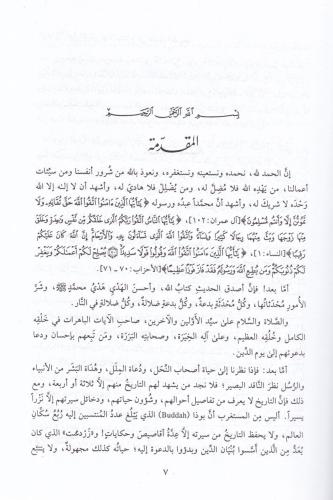 بسم الله الرحمن الرحيم
المقدّمة
إنَّ الحمد لله، نحمده ونستعينه ونستغفره، ونعوذ بالله من شرور أنفسنا ومن سيّئات
أعمالنا، من يَهْدِه الله فلا مُضِلَّ له، ومن يُضْلِلْ فلا هاديَ له، وأشهد أن لا إله إلا الله
وَحْدَه لا شريك له، وأشهد أنَّ محمّداً عبدُه ورسوله ﴿يَٰٓأَيُّهَا ٱلَّذِينَ ءَامَنُوا۟ ٱتَّقُوا۟ ٱللَّهَ حَقَّ تُقَاتِهِۦ وَلَا
تَمُوتُنَّ إِلَّا وَأَنتُم مُّسْلِمُونَ﴾ [آل عمران: ١٠٢]، ﴿يَٰٓأَيُّهَا ٱلنَّاسُ ٱتَّقُوا۟ رَبَّكُمُ ٱلَّذِى خَلَقَكُم مِّن نَّفْسٍ وَٰحِدَةٍ وَخَلَقَ
مِنْهَا زَوْجَهَا وَبَثَّ مِنْهُمَا رِجَالًا كَثِيرًا وَنِسَآءً وَٱتَّقُوا۟ ٱللَّهَ ٱلَّذِى تَسَآءَلُونَ بِهِۦ وَٱلْأَرْحَامَ إِنَّ ٱللَّهَ كَانَ عَلَيْكُمْ
رَقِيبًا﴾ [النساء: ١]، ﴿يَٰٓأَيُّهَا ٱلَّذِينَ ءَامَنُوا۟ ٱتَّقُوا۟ ٱللَّهَ وَقُولُوا۟ قَوْلًا سَدِيدًا ۝ يُصْلِحْ لَكُمْ أَعْمَٰلَكُمْ وَيَغْفِرْ
لَكُمْ ذُنُوبَكُمْ وَمَن يُطِعِ ٱللَّهَ وَرَسُولَهُۥ فَقَدْ فَازَ فَوْزًا عَظِيمًا﴾ [الأحزاب: ٧٠ ـ ٧١]
أمّا بعد: فإنَّ أصدق الحديثِ كتابُ الله، وأحسنَ الهَدْي هَدْيُ محمّدٍ ﷺ، وشرَّ
الأمورِ مُحْدَثاتُها، وكلُّ مُحْدَثَةٍ بدعةٌ، وكلُّ بدعةٍ ضلالةٌ، وكلُّ ضلالةٍ في النَّار.
والصَّلاة والسَّلام على سيِّد الأوّلين والآخرين، صاحبِ الآيات الباهرات في خَلْقِه
الكامل وخُلُقِه العظيم، وعلى آلِه الخِيَرَة، وصحابتِه البَرَرَة، ومَن تبِعهم بإحسان ودعا
بدعوتهم إلى يوم الدِّين.
أمّا بعد: فإذا نظرنا إلى حياة أصحاب النِّحَل، ودُعاة المِلَل، وهُداة البَشَر من الأنبياء
والرُّسل نظرَ النّاقد البصير؛ فلا نجد من يشهد لهم التاريخُ منهم إلاّ ثلاثة أو أربعة، ومع
ذلك فإنَّ التاريخ لا يعرف من تفاصيل أحوالهم، وشُؤون حياتهم، ودخائل سيرتهم إلا نَزْراً
يسيراً. أليس من المستغرب أنَّ بوذا (Buddah) الذي يَبْلُغ عددُ المنتسبين إليه رُبعَ سُكّان
العالم، ولا يحفظ التاريخ من سيرته إلّا عِدَّةَ أقاصيصَ وحكاياتٍ! و«زَرْدَشت» الذي كان
يُعَدُّ من الَّذين أسَّسوا بُنْيان الدِّين وبدؤوا بالدعوة إليه؛ حياتُه كذلك مجهولةٌ، ولا ينتفع
٧